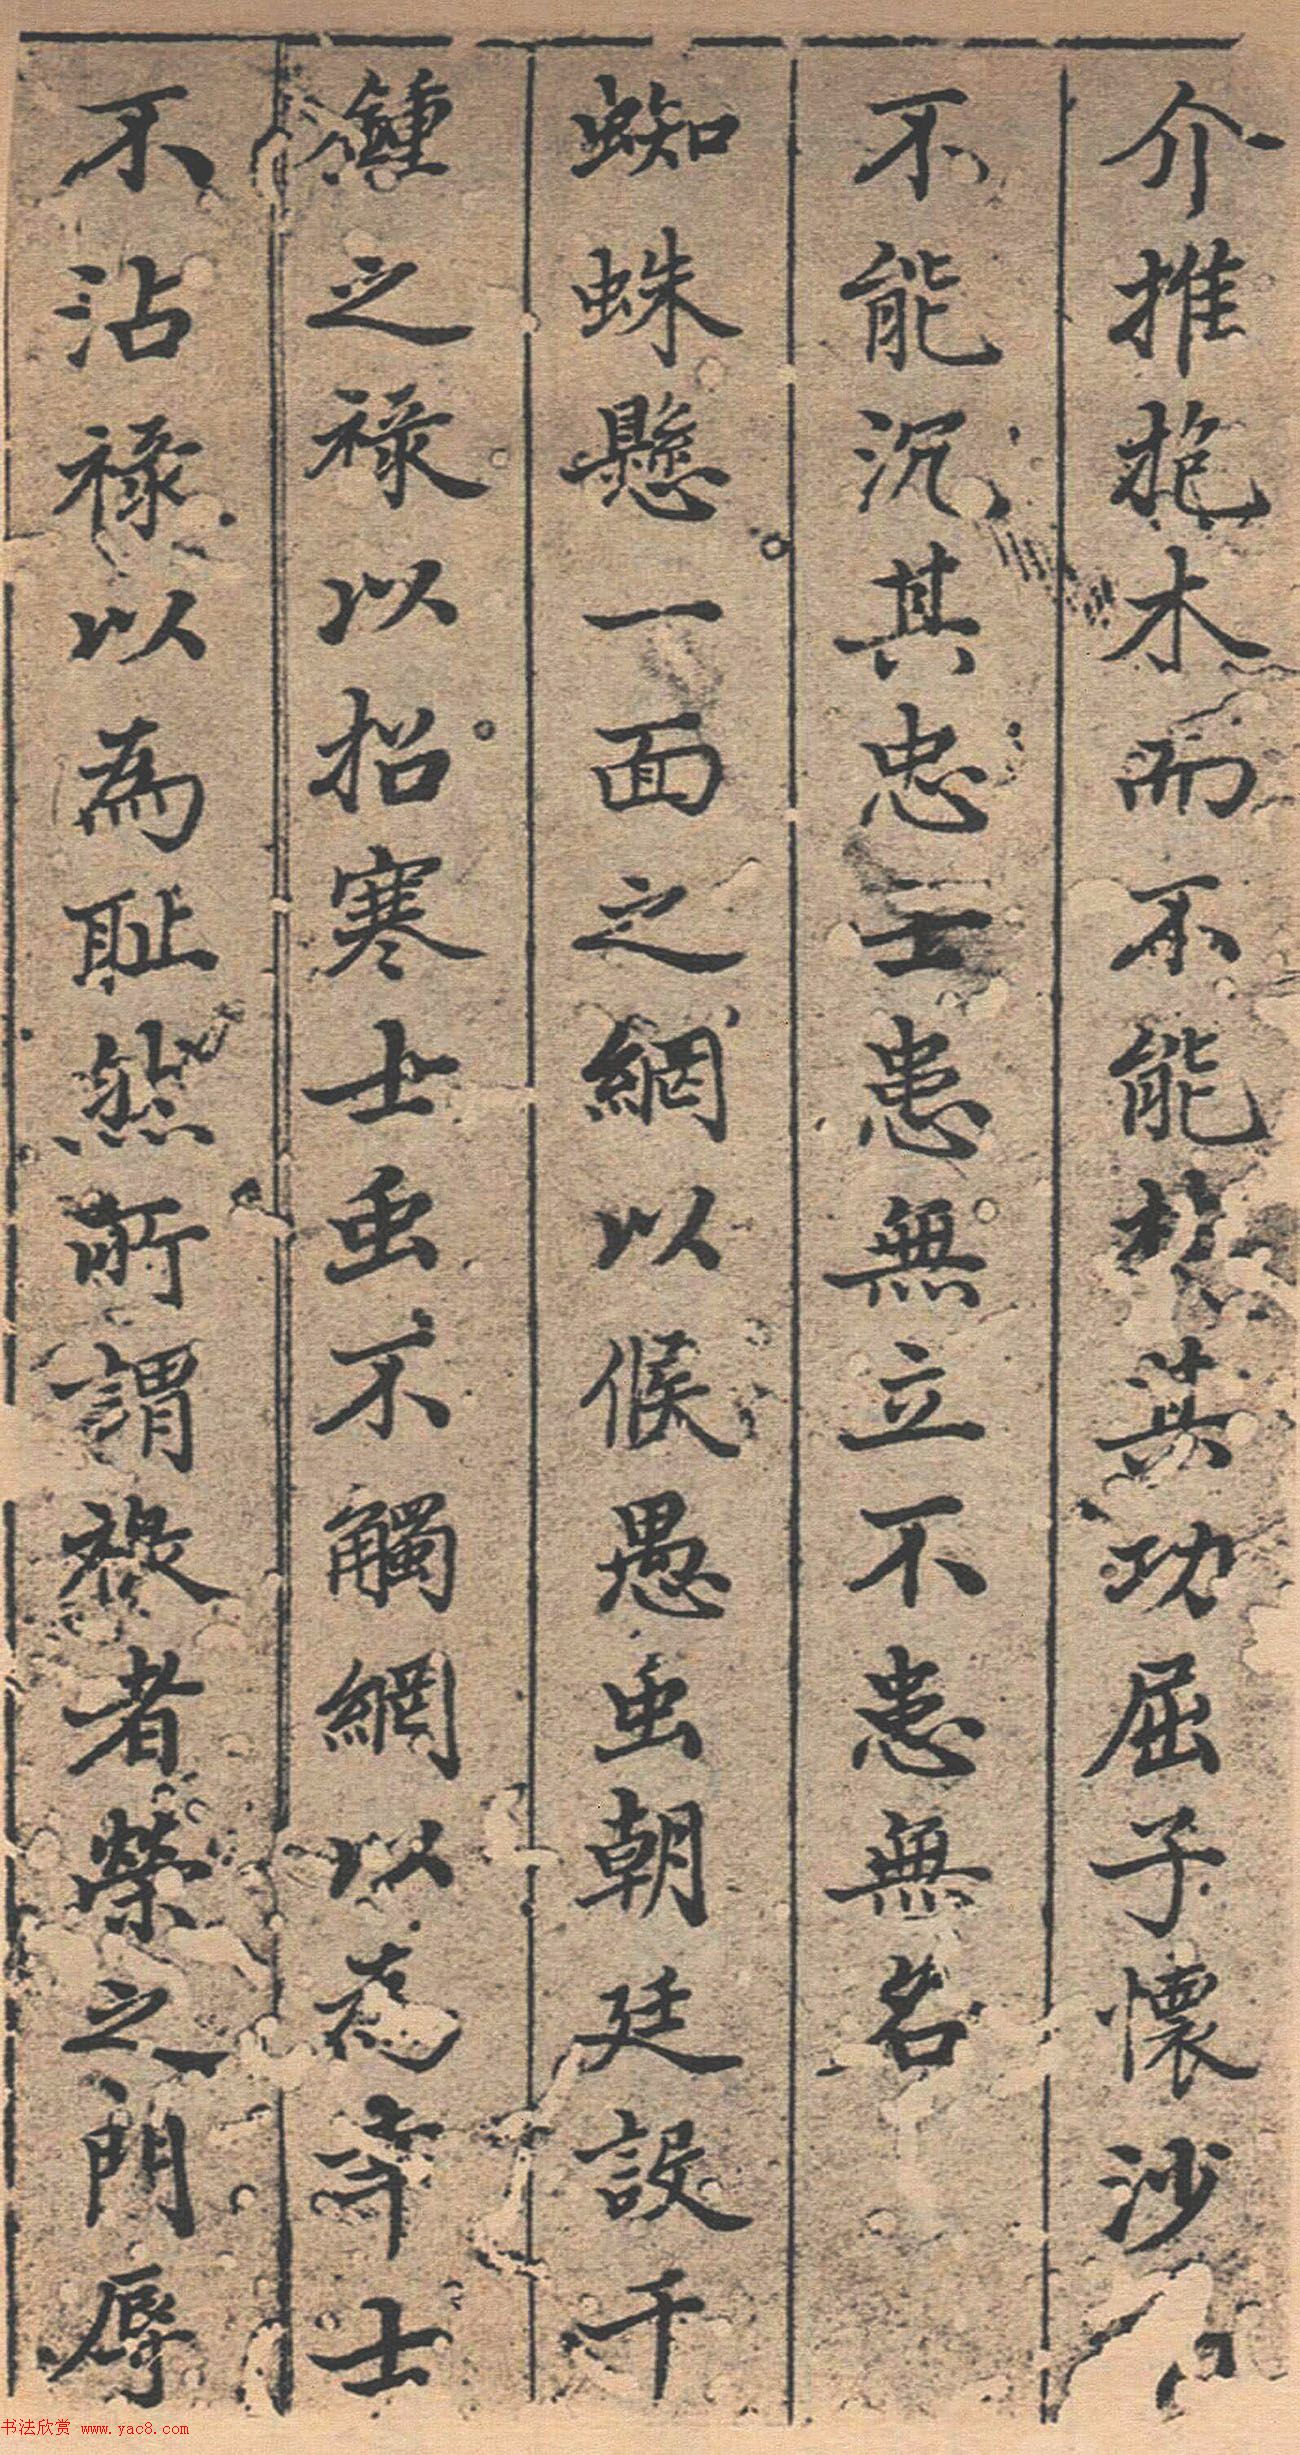 介推抱木而不能於其功屈子懷沙
不能沉其忠士患無立不患無名
蜘蛛懸一面之網以候愚虫朝廷設千
鍾之祿以招寒士虫不觸網以為幸士
不沾祿以為恥然所謂祿者榮之門辱
书法欣赏 www.yac8.com